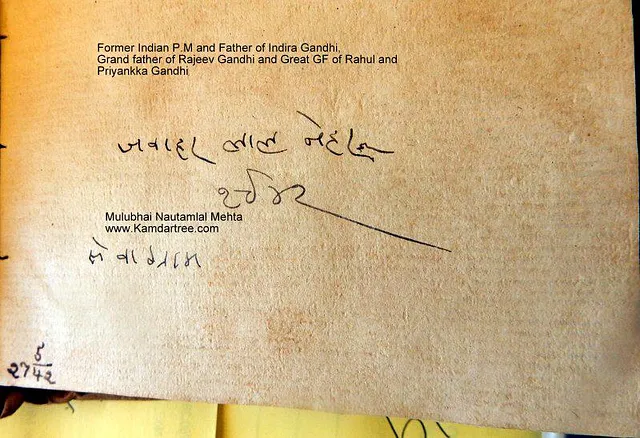 Former Indian P.M and Father of Indira Gandhi,
Grand father of Rajeev Gandhi and Great GF of Rahul and
Priyankka Gandhi
જવાહર લાલ નેહરૂ
Mulubhai Nautamlal Mehta
www.Kamdartree.com
સેવાગ્રામ
27 5/42